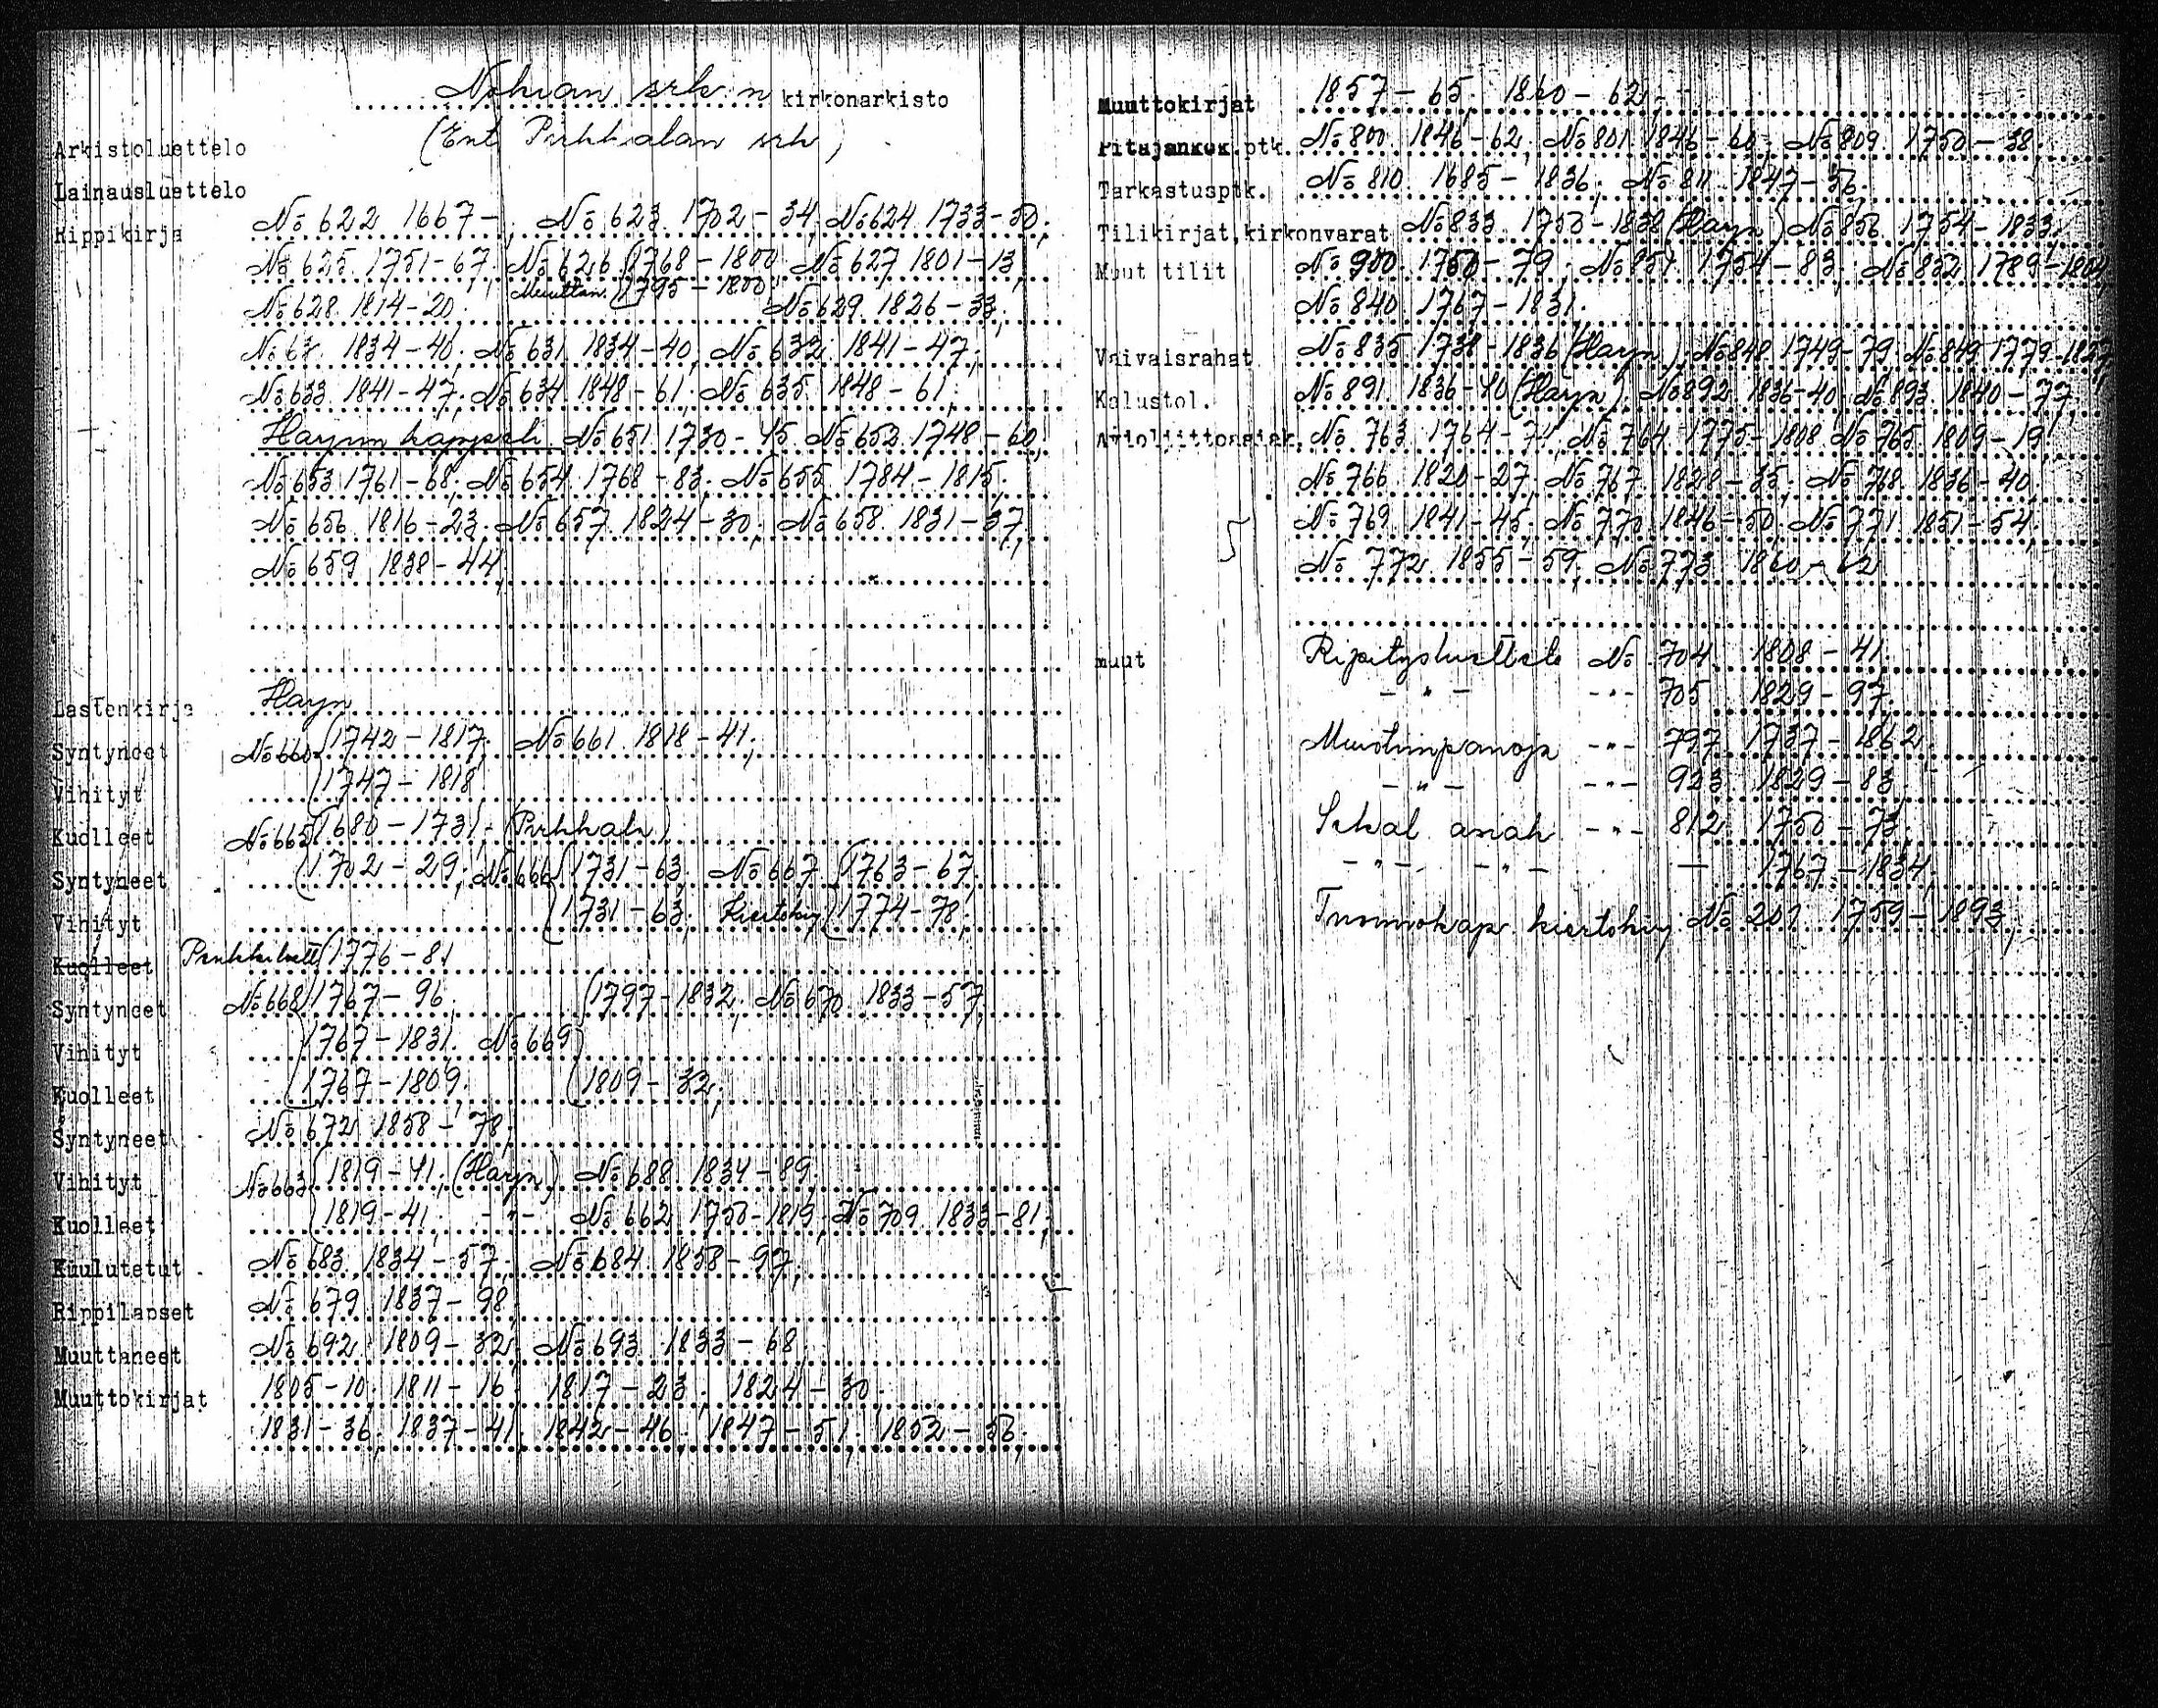 Nokian srk:n kirkonarkisto
(Ent. Pirkkalan srk)
Arkistoluettelo
Lainausluettelo
Rippikirja No 622 1667-; No 623 1702-34; No 624 1733-50;
No 625 1751-67; No 626 (1768-1800; No 627 1801-13;
Muuttan. (1795-1800;
No 628 1814-20; No 629 1826-33;
No 63 1834-40; No 631 1834-40; No 632 1841-47;
No 633 1841-47; No 634 1848-61; No 635 1848-61;
Harjun kappsrk. No 651 1730-45; No 652 1748-60;
No 653 1761-68; No 654 1768-83; No 655 1784-1815;
No 656 1816-23; No 657 1824-30; No 658 1831-37;
No 659 1838-44;
Lastenkirja Harju
Syntyneet No 660 (1742-1817; No 661 1818-41;
Vihityt (1747-1818
Kuolleet No 665 (1680-1731; (Pirkkala)
Syntyneet (1702-29; No 666 (1731-63; No 667 (1763-67;
Vihityt (1731-63; Kiertokirj (1774-78;
Kuolleet (1776-81
Syntyneet No 668 (1767-96; (1797-1832; No 670 1833-57;
Vihityt 1767-1831; No 669
Kuolleet 1767-1809; (1809-32;
Syntyneet No 672 1858-78;
Vihityt No 663 (1819-41; (Harju) No 688 1834-89;
Kuolleet (1819-41; -"- No 662 1750-1819; No 709 1833-81;
Kuulutetut No 683 1834-57; No 684 1858-97;
Rippilapset No 679 1837-98;
Muuttaneet No 692 1809-32; No 693 1833-68;
Muuttokirjat 1805-10; 1811-16; 1817-23; 1824-30;
1831-36; 1837-41; 1842-46; 1847-51; 1852-56;
Muuttokirjat 1857-65; 1860-62;
Pitäjänkok.ptk. No 800 1846-62; No 801 1846-60; No 809 1750-38;
Tarkastusptk. No 810 1685-1836; No 811 1847-56;
Tilikirjat,kirkonvarat No 833 1750-1838 (Harju) No 856 1754-1833;
Muut tilit No 900 1750-79; No 851 1754-83; No 852 1789-1804;
No 840 1767-1831;
Vaivaisrahat No 835 1738-1836 (Harju); No 848 1749-79; No 849 1779-1827;
Kalustol. No 891 1836-40 (Harju); No 892 1836-40; No 893 1840-77;
Avioliittoasiak. No 763 1764-74; No 764 1775-1808; No 765 1809-19;
No 766 1820-27; No 767 1828-35; No 768 1836-40;
No 769 1841-45; No 770 1846-50; No 771 1851-54;
No 772 1855-59; No 773 1860-62
muut Ripitysluettelo No 704 1808-41;
-"- -"- 705 1829-97;
Muistiinpanoja -"- 797 1737-1862;
-"- -"- 923 1829-83;
Sekal. asiak. -"- 812 1750-73;
-"- -"- — 1767-1834;
Tuomiokap. kiertokirj. No 201 1759-1893;